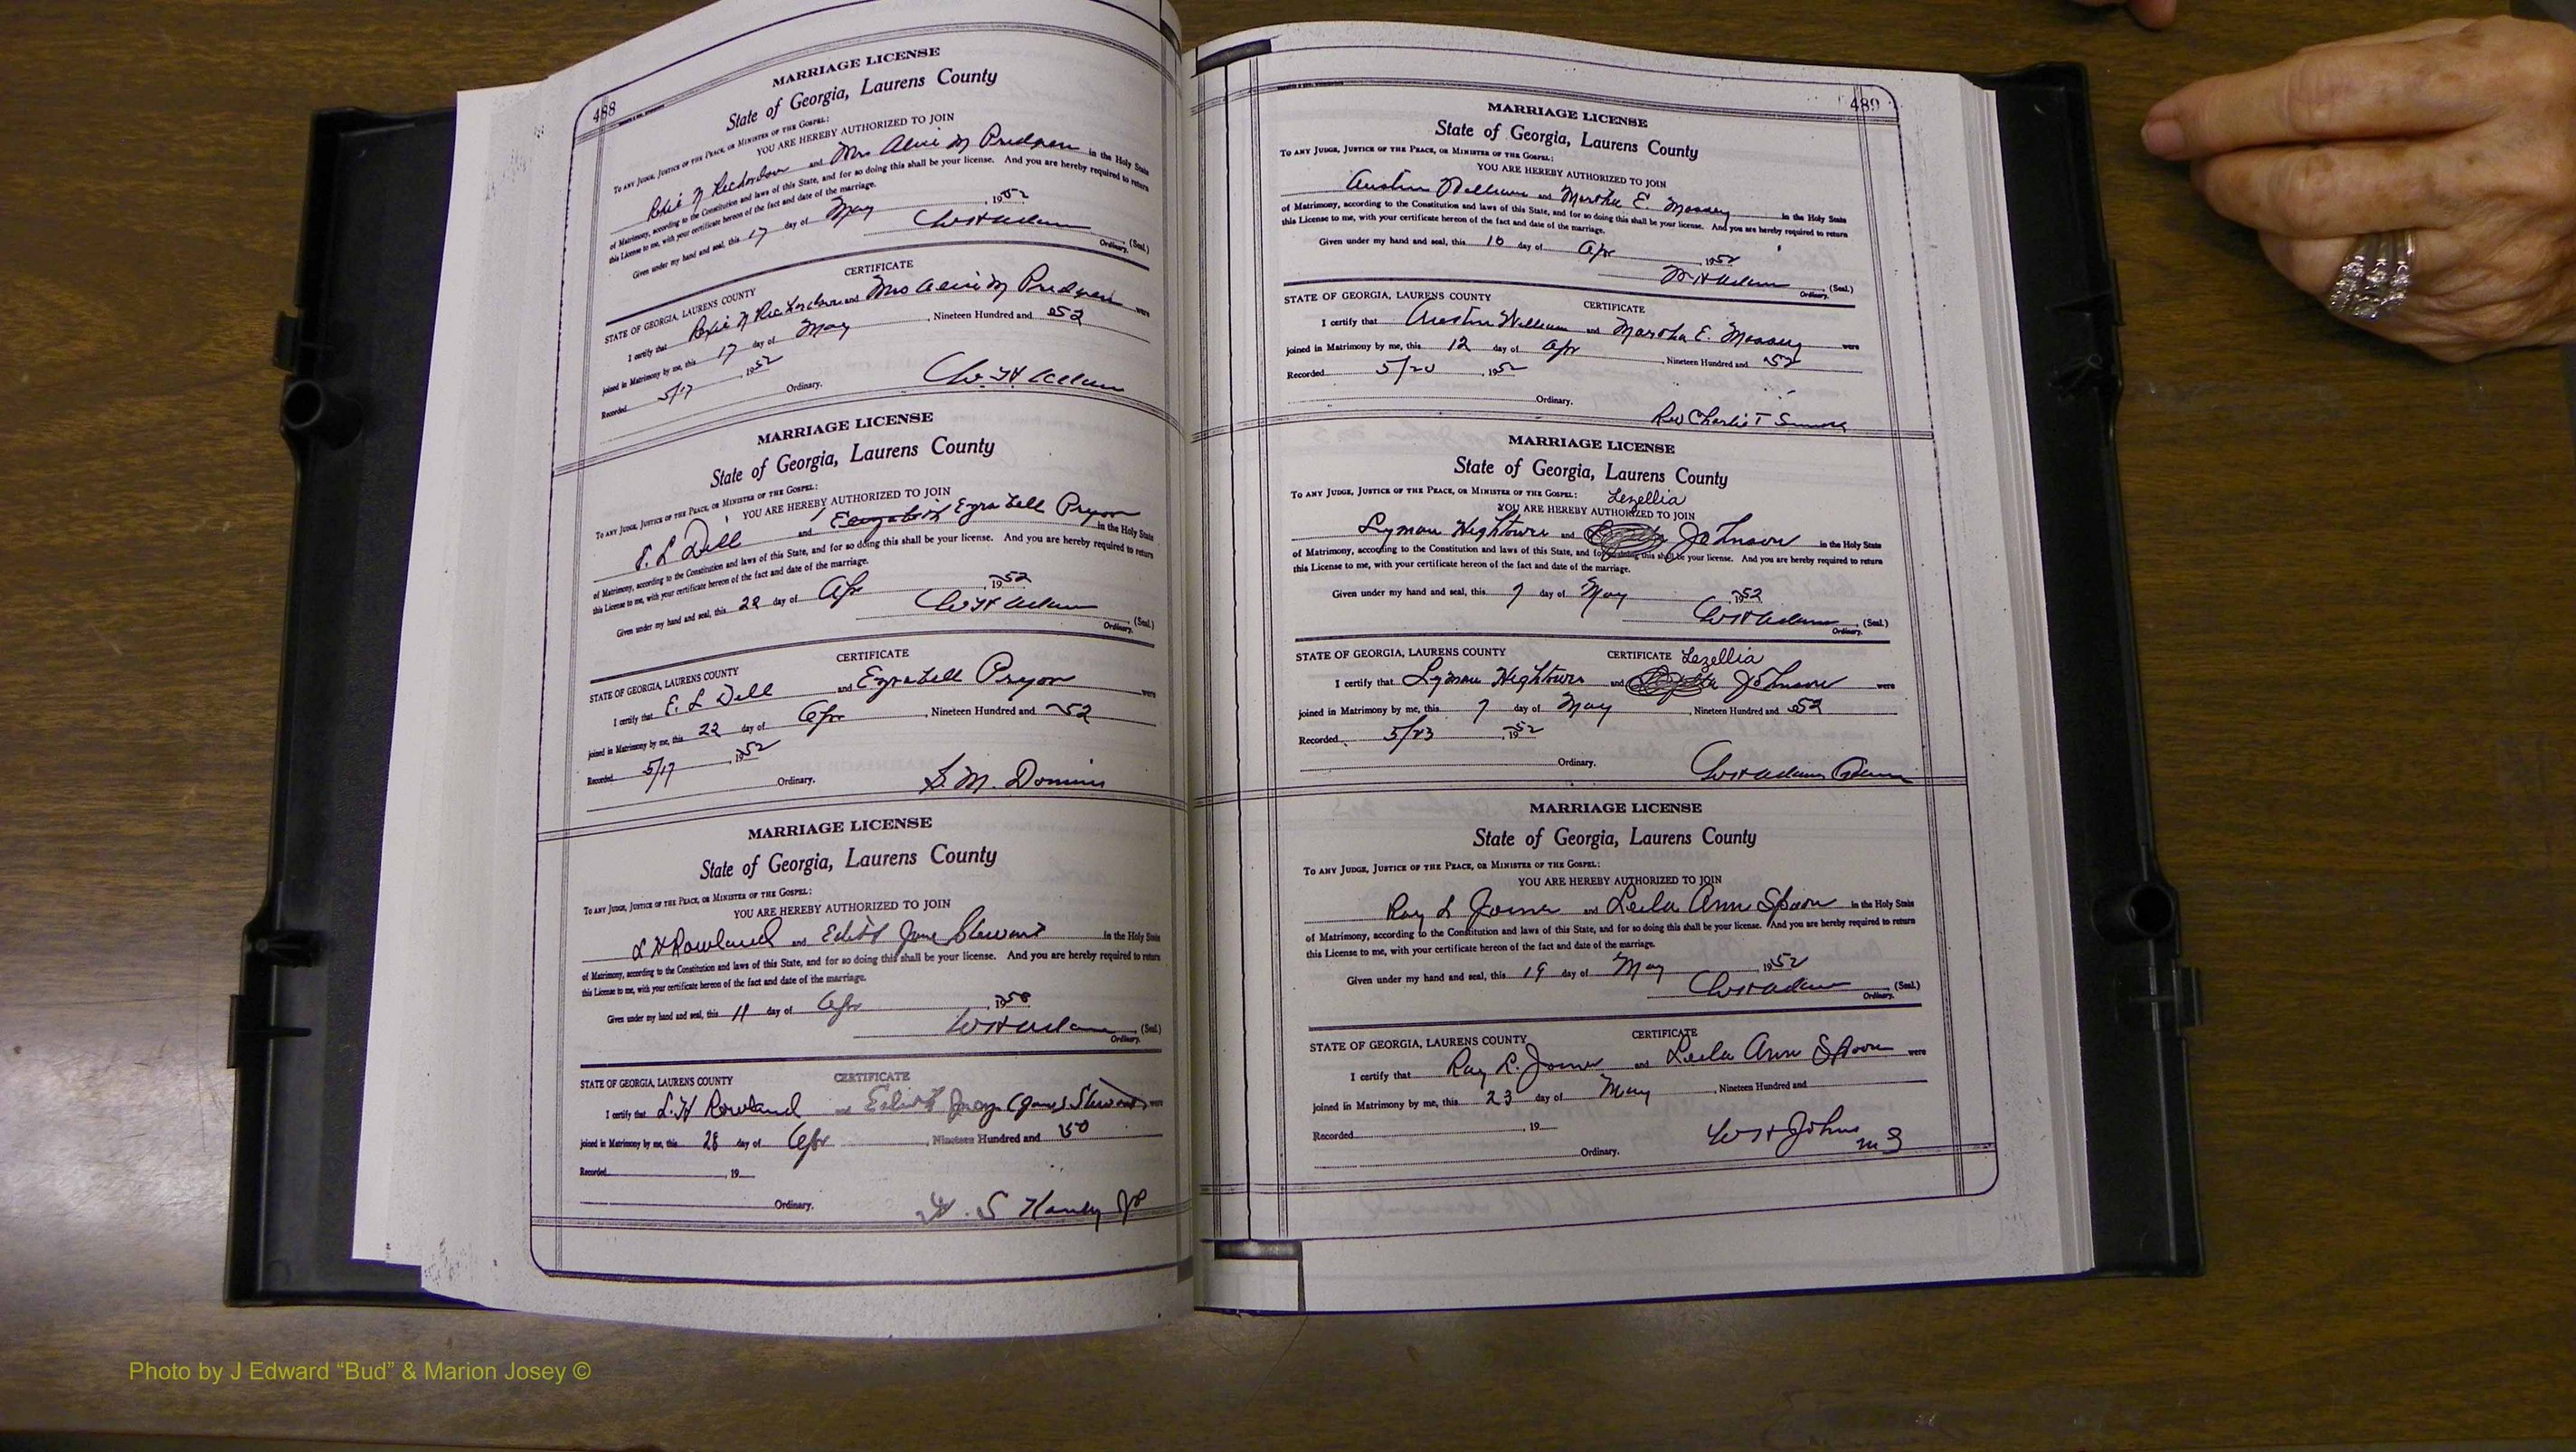 488
MARRIAGE LICENSE
State of Georgia, Laurens County
TO ANY JUDGE, JUSTICE OF THE PEACE, OR MINISTER OF THE GOSPEL:
YOU ARE HEREBY AUTHORIZED TO JOIN
N Richardson and Mrs M in the Holy State
of Matrimony, according to the Constitution and laws of this State, and for so doing this shall be your license. And you are hereby required to return
this License to me, with your certificate hereon of the fact and date of the marriage.
Given under my hand and seal, this 17 day of May, 1952
W H Adams (Seal.)
Ordinary.
CERTIFICATE
STATE OF GEORGIA, LAURENS COUNTY
I certify that N Richardson and Mrs M were
joined in Matrimony by me, this 17 day of May, Nineteen Hundred and 52
Recorded 5/17, 1952
Ordinary. W. H. Adams
MARRIAGE LICENSE
State of Georgia, Laurens County
TO ANY JUDGE, JUSTICE OF THE PEACE, OR MINISTER OF THE GOSPEL:
YOU ARE HEREBY AUTHORIZED TO JOIN
E. L Dell and Ezrabell Pryor in the Holy State
of Matrimony, according to the Constitution and laws of this State, and for so doing this shall be your license. And you are hereby required to return
this License to me, with your certificate hereon of the fact and date of the marriage.
Given under my hand and seal, this 22 day of Apr, 1952
W H Adams (Seal.)
Ordinary.
CERTIFICATE
STATE OF GEORGIA, LAURENS COUNTY
I certify that E. L Dell and Ezrabell Pryor were
joined in Matrimony by me, this 22 day of Apr, Nineteen Hundred and 52
Recorded 5/17, 1952
Ordinary. M.
MARRIAGE LICENSE
State of Georgia, Laurens County
TO ANY JUDGE, JUSTICE OF THE PEACE, OR MINISTER OF THE GOSPEL:
YOU ARE HEREBY AUTHORIZED TO JOIN
L H Rowland and Edith Jane Stewart in the Holy State
of Matrimony, according to the Constitution and laws of this State, and for so doing this shall be your license. And you are hereby required to return
this License to me, with your certificate hereon of the fact and date of the marriage.
Given under my hand and seal, this 11 day of Apr
W H Adams (Seal.)
Ordinary.
STATE OF GEORGIA, LAURENS COUNTY CERTIFICATE
I certify that L. H Rowland and Edith were
joined in Matrimony by me, this 28 day of Apr, Nineteen Hundred and 50
Recorded, 19
Ordinary. S JP
489
MARRIAGE LICENSE
State of Georgia, Laurens County
TO ANY JUDGE, JUSTICE OF THE PEACE, OR MINISTER OF THE GOSPEL:
YOU ARE HEREBY AUTHORIZED TO JOIN
Austin William and Martha E. Massey in the Holy State
of Matrimony, according to the Constitution and laws of this State, and for so doing this shall be your license. And you are hereby required to return
this License to me, with your certificate hereon of the fact and date of the marriage.
Given under my hand and seal, this 10 day of Apr, 1952
W H Adams (Seal.)
Ordinary.
STATE OF GEORGIA, LAURENS COUNTY CERTIFICATE
I certify that Austin William and Martha E. Massey were
joined in Matrimony by me, this 12 day of Apr, Nineteen Hundred and 52
Recorded 5/20, 1952
Ordinary. Rev Charlie T
MARRIAGE LICENSE
State of Georgia, Laurens County
TO ANY JUDGE, JUSTICE OF THE PEACE, OR MINISTER OF THE GOSPEL: Lezellia
YOU ARE HEREBY AUTHORIZED TO JOIN
Lyman Hightower and Johnson in the Holy State
of Matrimony, according to the Constitution and laws of this State, and for so doing this shall be your license. And you are hereby required to return
this License to me, with your certificate hereon of the fact and date of the marriage.
Given under my hand and seal, this 7 day of May, 1952
W H Adams (Seal.)
Ordinary.
STATE OF GEORGIA, LAURENS COUNTY CERTIFICATE Lezellia
I certify that Lyman Hightower and Johnson were
joined in Matrimony by me, this 7 day of May, Nineteen Hundred and 52
Recorded 5/23, 1952
Ordinary. W H Adams
MARRIAGE LICENSE
State of Georgia, Laurens County
TO ANY JUDGE, JUSTICE OF THE PEACE, OR MINISTER OF THE GOSPEL:
YOU ARE HEREBY AUTHORIZED TO JOIN
Ray L Joiner and Leila Ann Spoon in the Holy State
of Matrimony, according to the Constitution and laws of this State, and for so doing this shall be your license. And you are hereby required to return
this License to me, with your certificate hereon of the fact and date of the marriage.
Given under my hand and seal, this 19 day of May, 1952
W H Adams (Seal.)
Ordinary.
CERTIFICATE
STATE OF GEORGIA, LAURENS COUNTY
I certify that Ray L. Joiner and Leila Ann Spoon were
joined in Matrimony by me, this 23 day of May, Nineteen Hundred and
Recorded, 19
Ordinary. W H Johns M G
Photo by J Edward “Bud” & Marion Josey ©